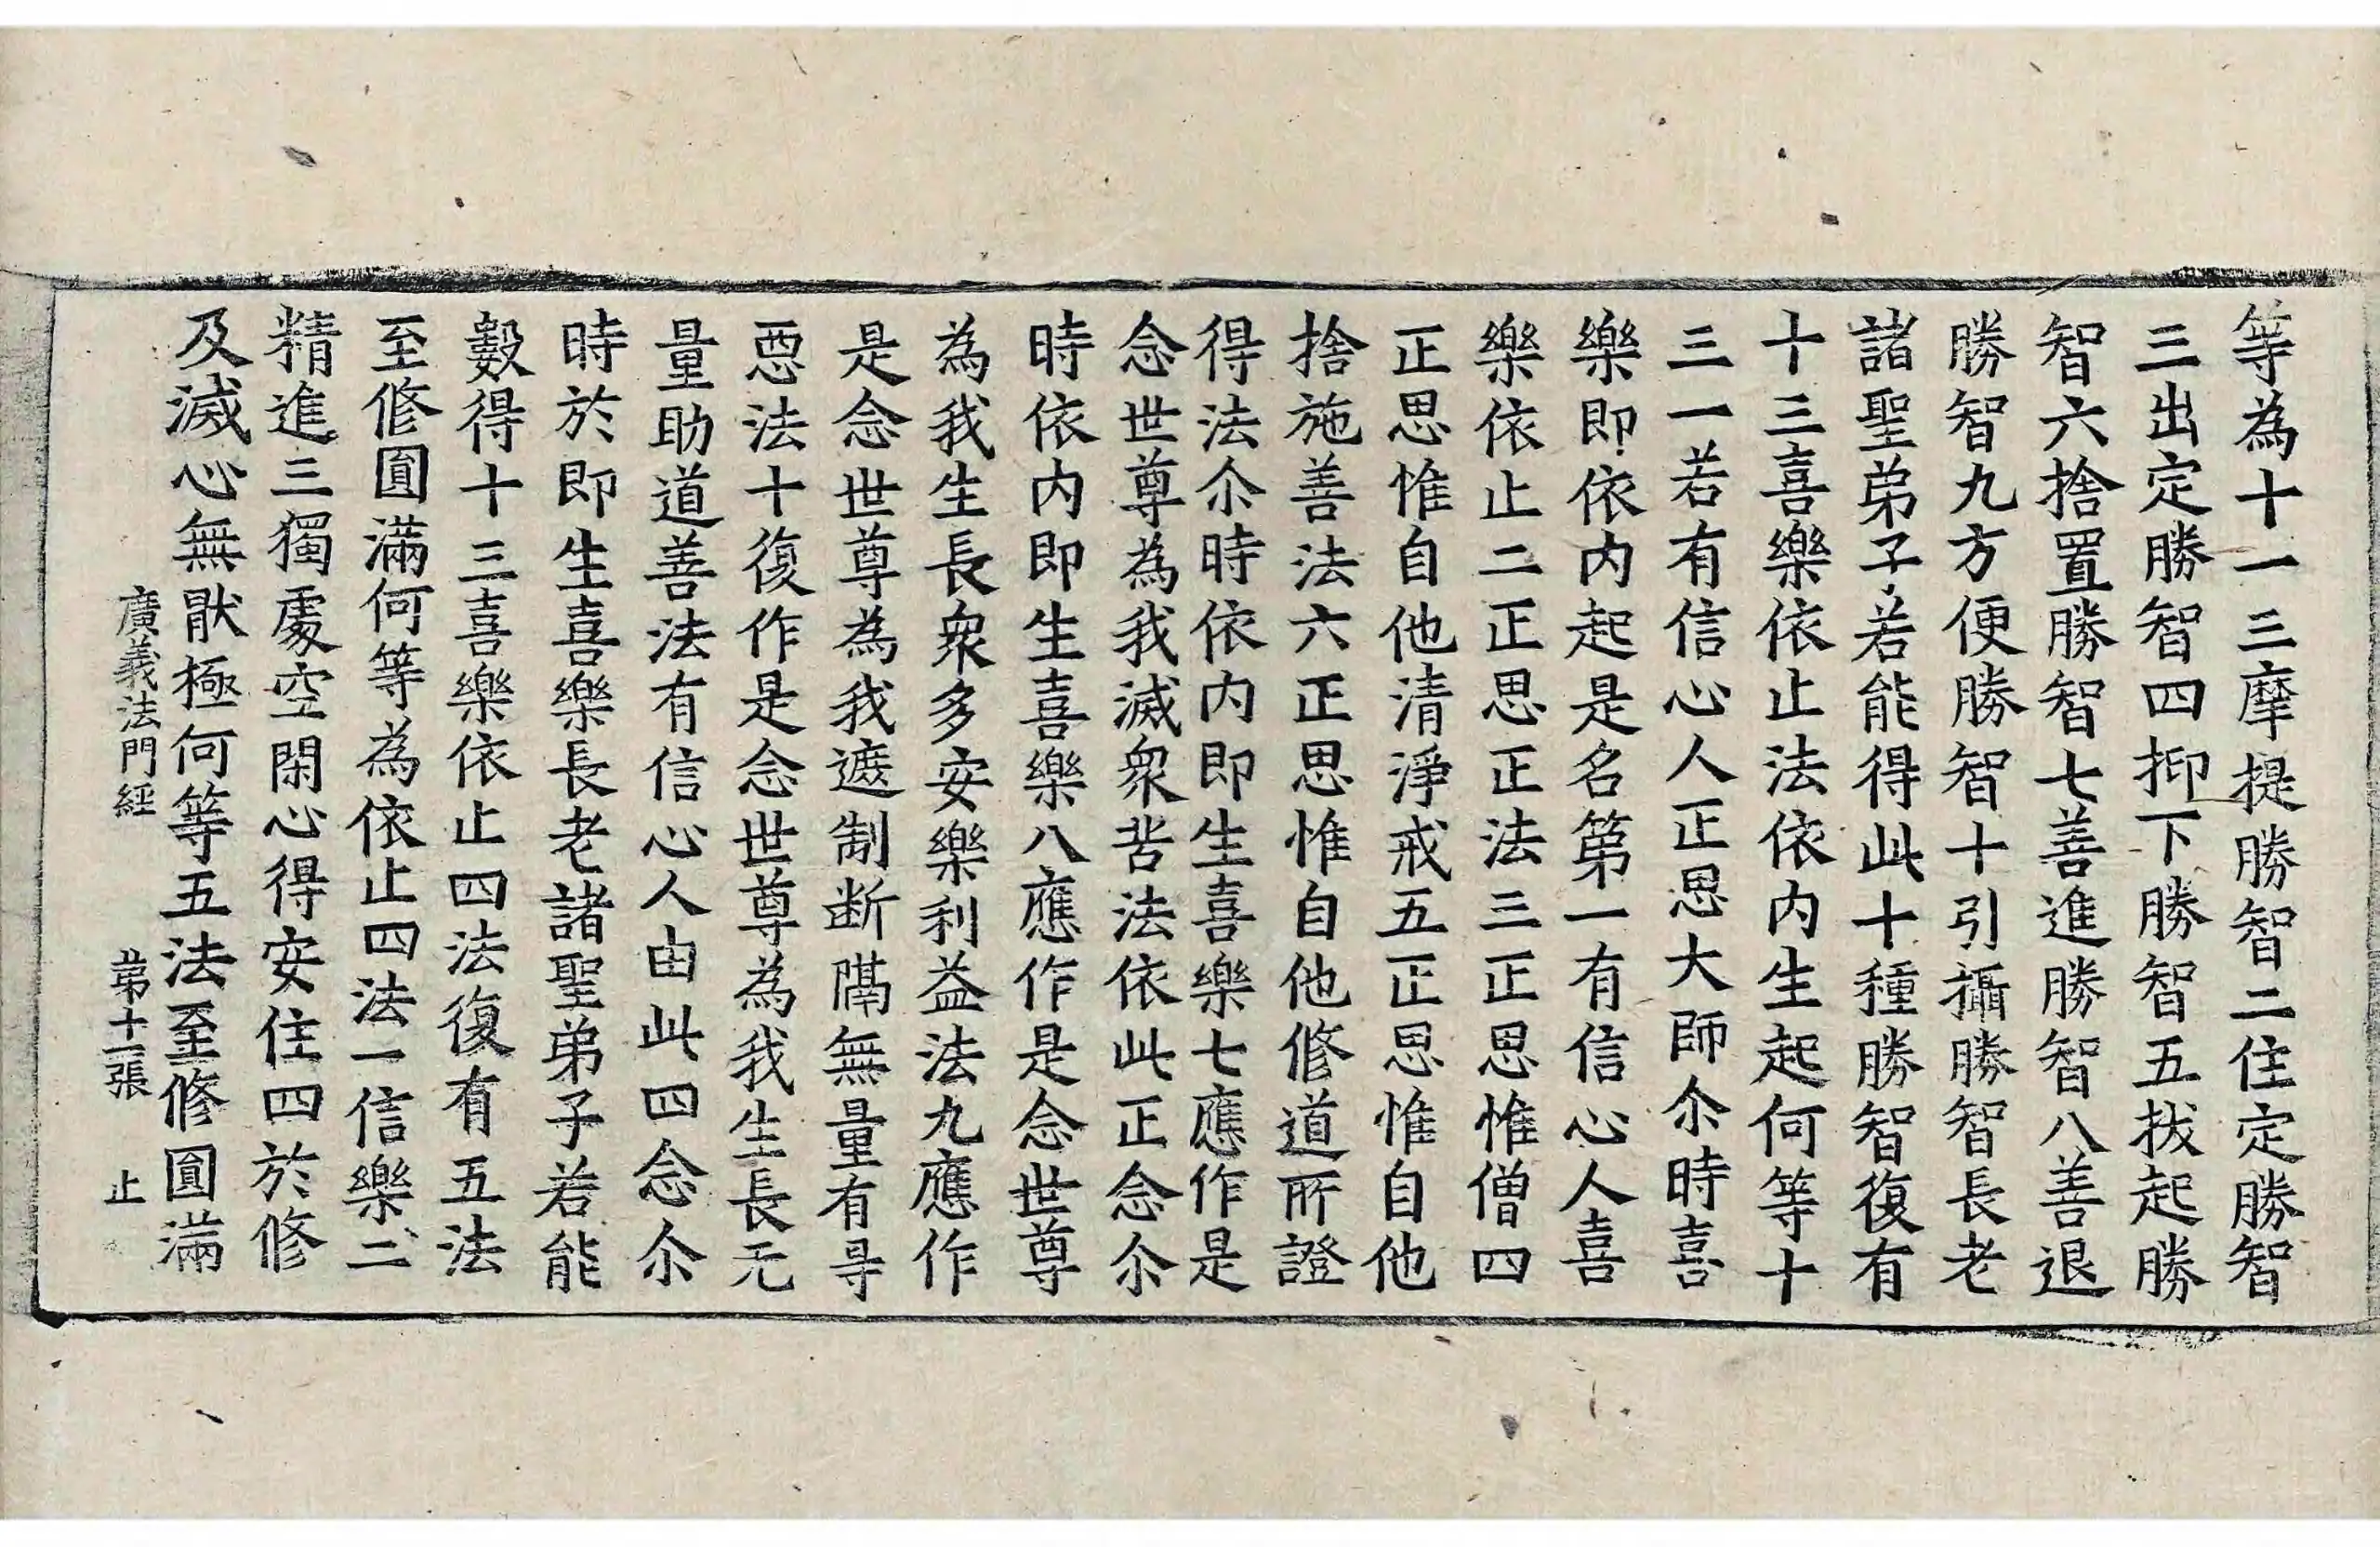 等為十一三摩提勝智二住定勝智
三出定勝智四抑下勝智五拔起勝
智六捨置勝智七善進勝智八善退
勝智九方便勝智十引攝勝智長老
諸聖弟子若能得此十種勝智復有
十三喜樂依止法依内生起何等十
三一若有信心人正思大師尒時喜
樂即依内起是名第一有信心人喜
樂依止二正思正法三正思惟僧四
正思惟自他清淨戒五正思惟自他
捨施善法六正思惟自他修道所證
得法尒時依内即生喜樂七應作是
念世尊為我滅衆苦法依此正念尒
時依内即生喜樂八應作是念世尊
為我生長衆多安樂利益法九應作
是念世尊為我遮制断隔無量有㝵
惡法十復作是念世尊為我生長无
量助道善法有信心人由此四念尒
時於即生喜樂長老諸聖弟子若能
數得十三喜樂依止四法復有五法
至修圓滿何等為依止四法一信樂二
精進三獨處空閑心得安住四於修
及滅心無猒極何等五法至修圓滿
廣義法門經 第十二張 止